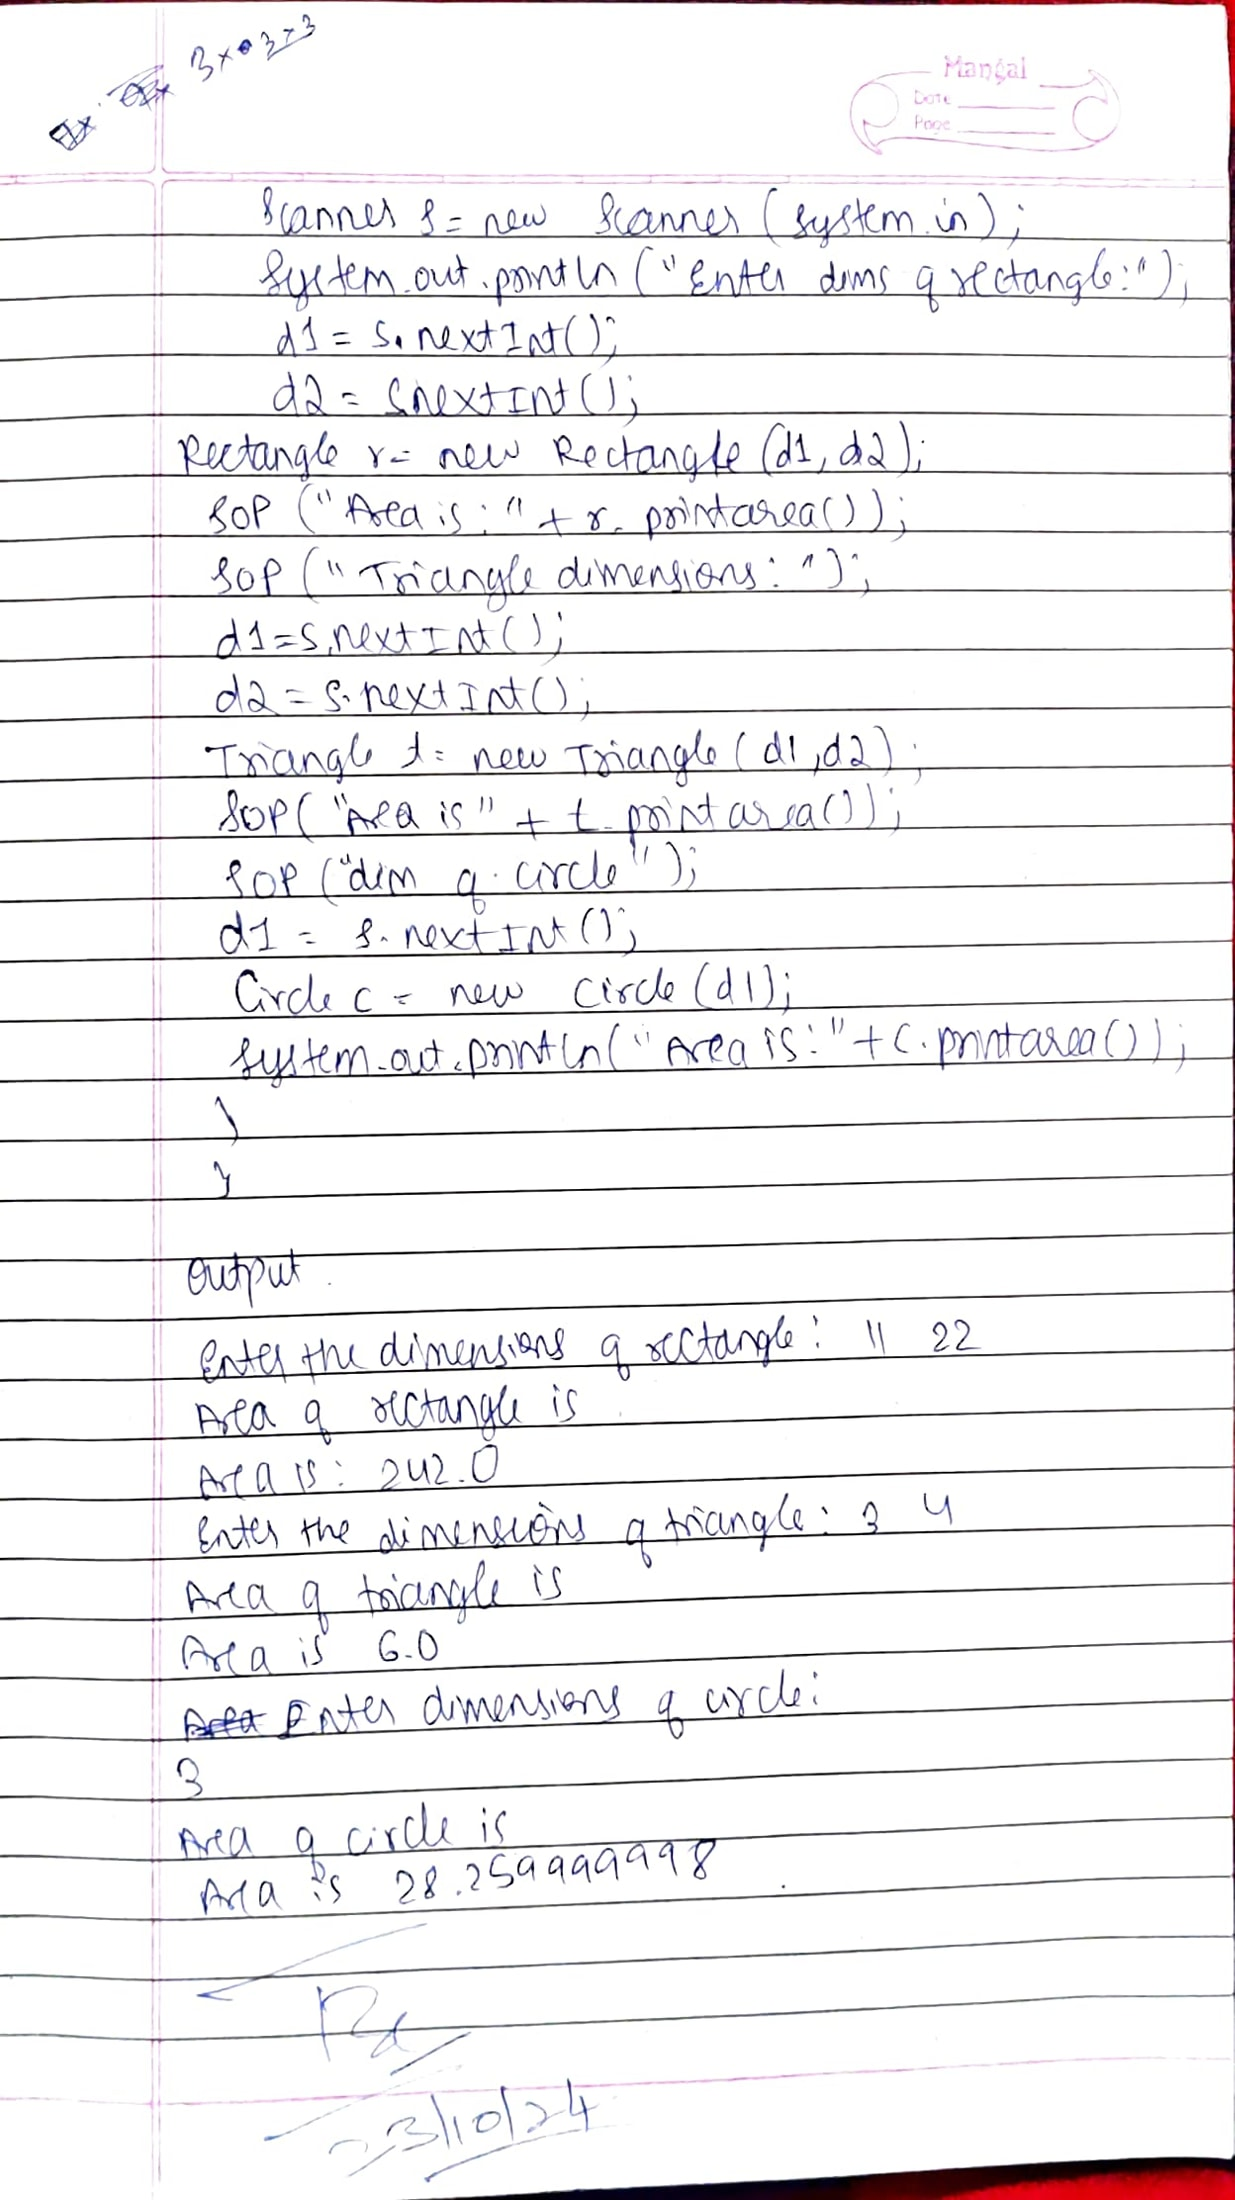 3x 3x3
Mangal
Date
Page
Scanner s = new Scanner (System.in);
System.out.println ("Enter dims of rectangle:");
d1 = s.nextInt();
d2 = s.nextInt();
Rectangle r = new Rectangle (d1, d2);
SOP ("Area is : " + r. printarea());
SOP (" Triangle dimensions: ");
d1 = s.nextInt();
d2 = s.nextInt();
Triangle t = new Triangle (d1, d2);
SOP ("Area is" + t. printarea());
SOP ("dim of circle");
d1 = s. nextInt();
Circle c = new Circle (d1);
System.out.println ("Area is:" + c. printarea());
}
}
Output
Enter the dimensions of rectangle: 11 22
Area of rectangle is
Area is: 242.0
Enter the dimensions of triangle: 3 4
Area of triangle is
Area is 6.0
Enter dimensions of circle:
3
Area of circle is
Area is 28.259999998
23/10/24